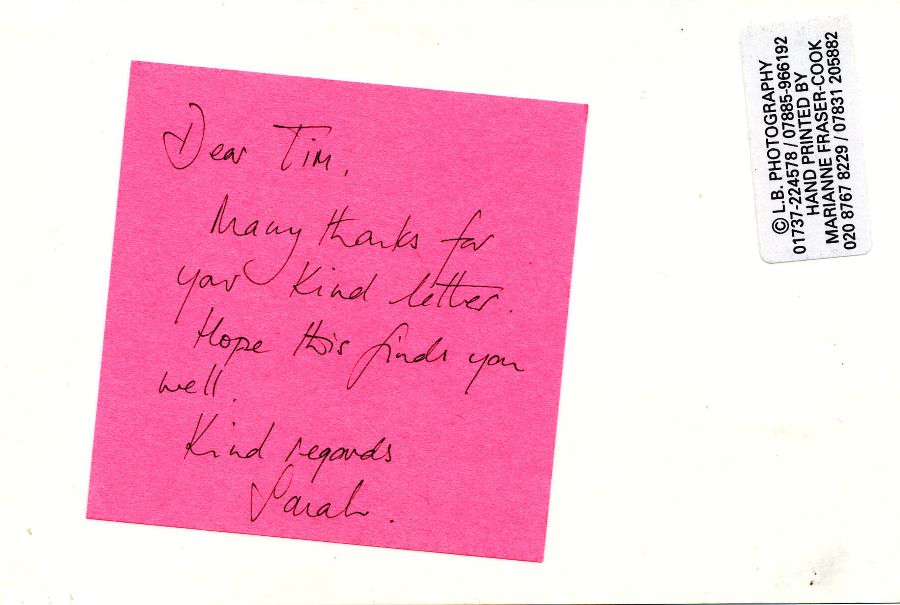 Dear Tim,
Many thanks for
your kind letter.
Hope this finds you
well.
Kind regards
Sarah.
© L.B. PHOTOGRAPHY
01737-224578 / 07885-966192
HAND PRINTED BY
MARIANNE FRASER-COOK
020 8767 8229 / 07831 205882